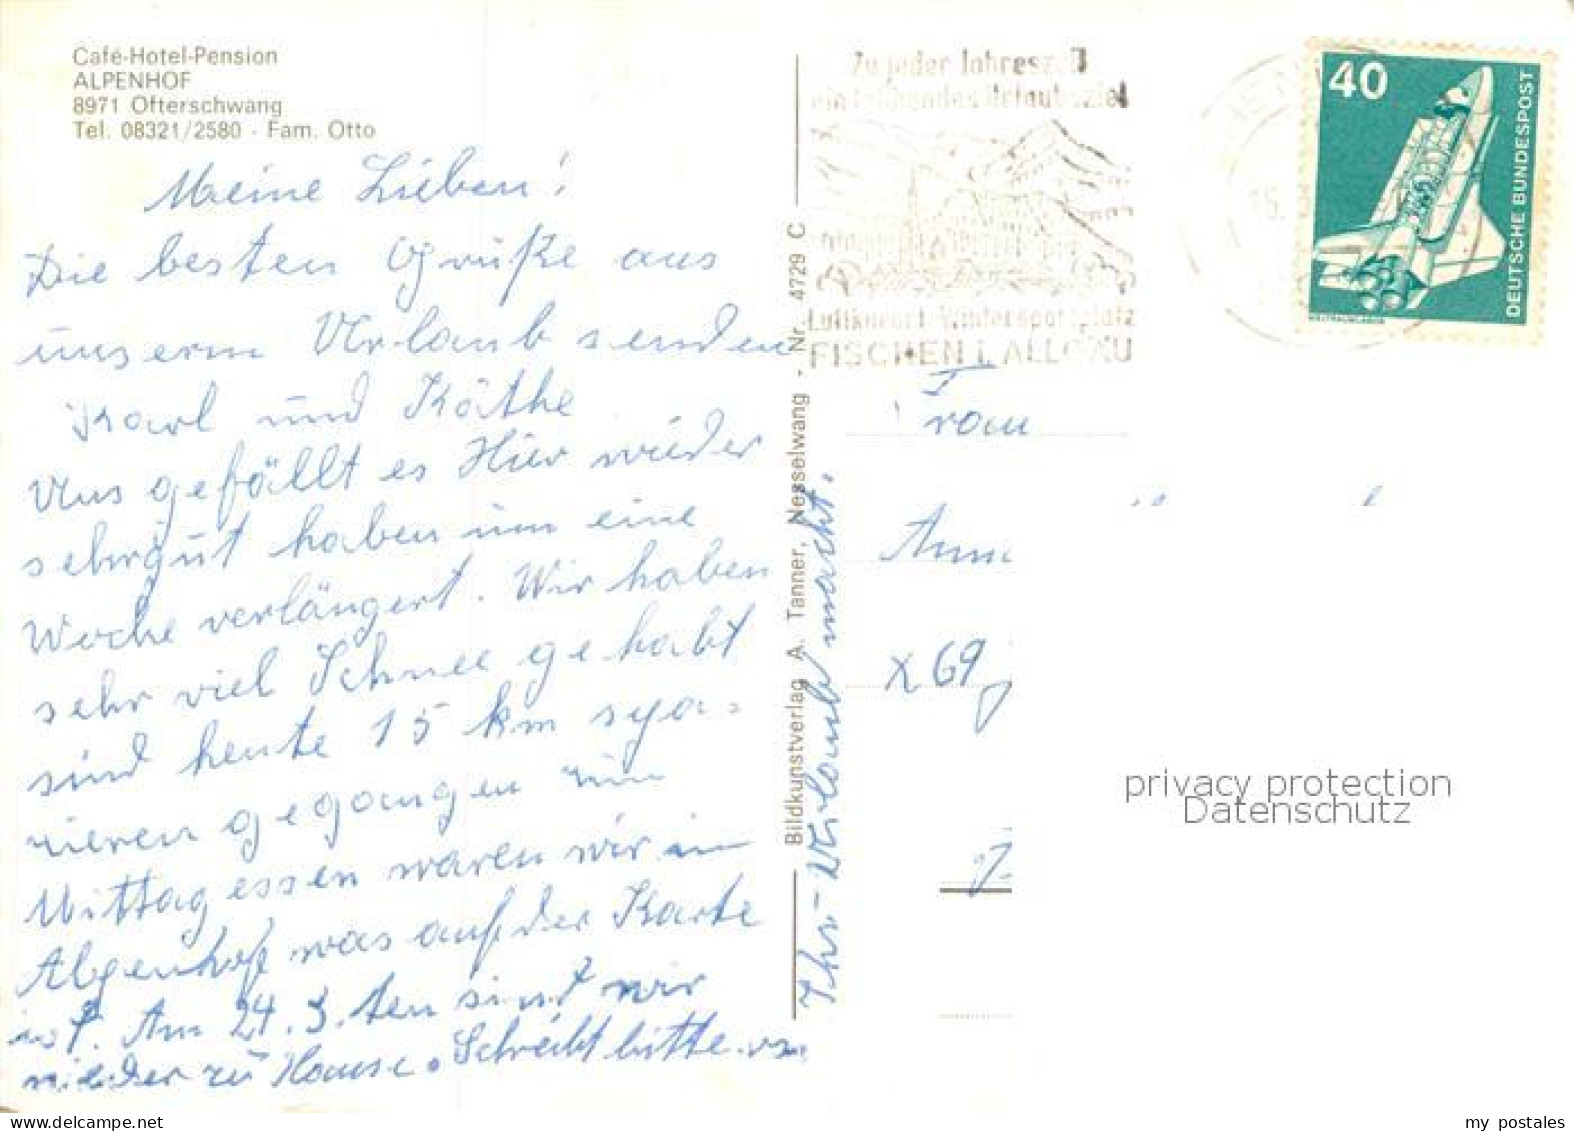 Café-Hotel-Pension
ALPENHOF
8971 Ofterschwang
Tel. 08321/2580 - Fam. Otto
Meine Lieben!
Die besten Grüße aus
unserm Urlaub senden
Karl und Käthe
Uns gefällt es Hier wieder
sehr gut haben um eine
Woche verlängert. Wir haben
sehr viel Schnee gehabt
sind heute 15 km spa-
zieren gegangen zum
Mittagessen waren wir im
Alpenhof was auf der Karte
ist. Am 24.3.ten sind wir
wieder zu Hause. Schreibt bitte
Ihr Urlaub macht.
Bildkunstverlag A. Tanner, Nesselwang - Nr. 4729 C
Zu jeder Jahreszeit
ein lohnendes Urlaubsziel
Luftkurort Wintersportplatz
FISCHEN I. ALLGÄU
15.
40
DEUTSCHE BUNDESPOST
Frau
x 69
privacy protection
Datenschutz
my postales